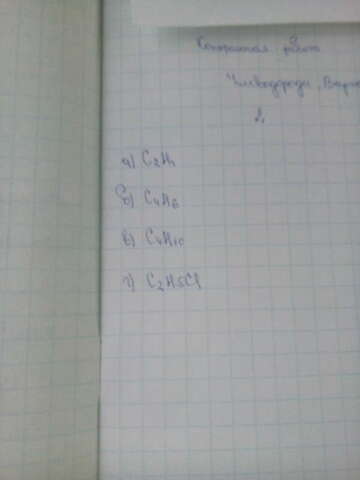 Контрольная работа
Углеводороды, Вариа
2.
а) C₂H₄
б) C₄H₆
в) C₄H₁₀
г) C₂H₅Cl